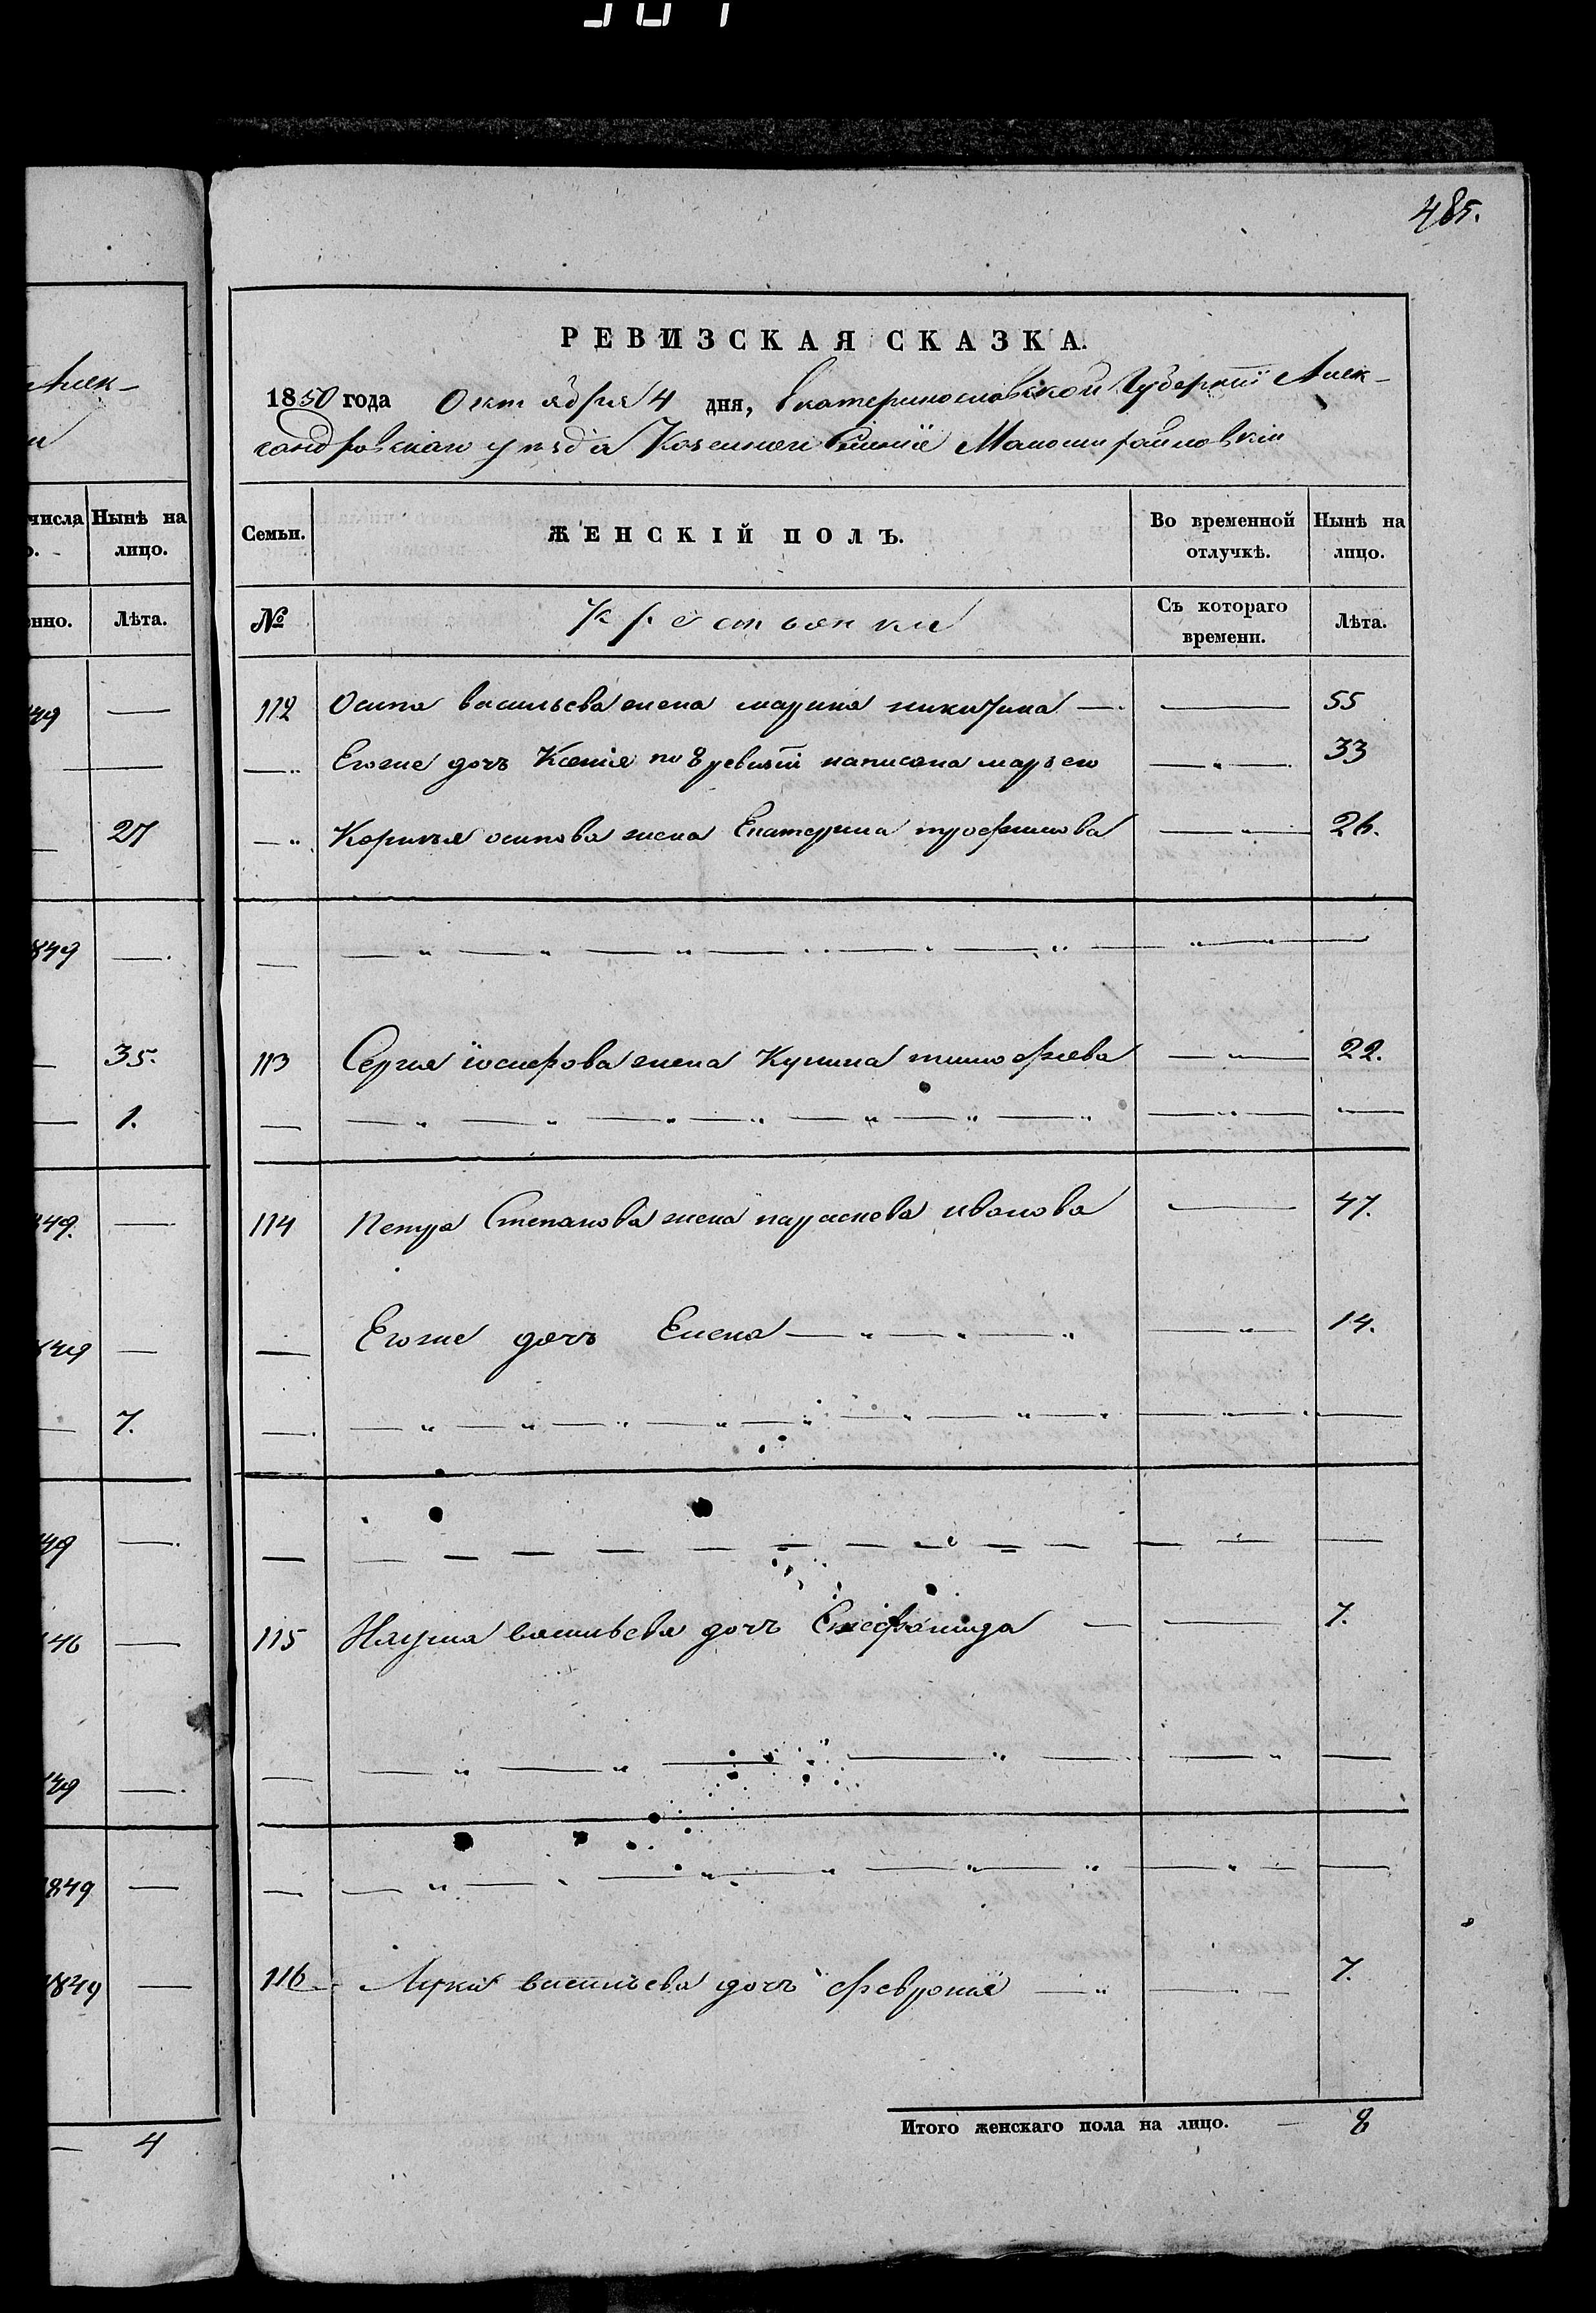 485.
РЕВИЗСКАЯ СКАЗКА.
1850 года Октября 4 дня, Екатеринославской Губерніи Алек-
сандровскаго уѣзда Казенной
ЖЕНСКІЙ ПОЛЪ.
Семьи.
Во временной отлучкѣ.
Нынѣ на лицо.
№
Крестьянки
Съ котораго времени.
Лѣта.
112 Осипа васильева жена марина никитина — 55
Егоже дочь Ксенія по 8 ревизіи написана марѳею 33
осипова жена Екатерина трофимова 26.
113 Сергія іосифова жена Кулина тимофіева 22.
114 Петра Степанова жена параскева иванова 47.
Егоже дочь Елена 14.
115 Наума васильева дочь 7.
116 Луки васильева дочь февронія 7.
Итого женскаго пола на лицо. — 8
Алек-
числа
Нынѣ на лицо.
Лѣта.
27
849
35.
1.
7.
849
1849
4